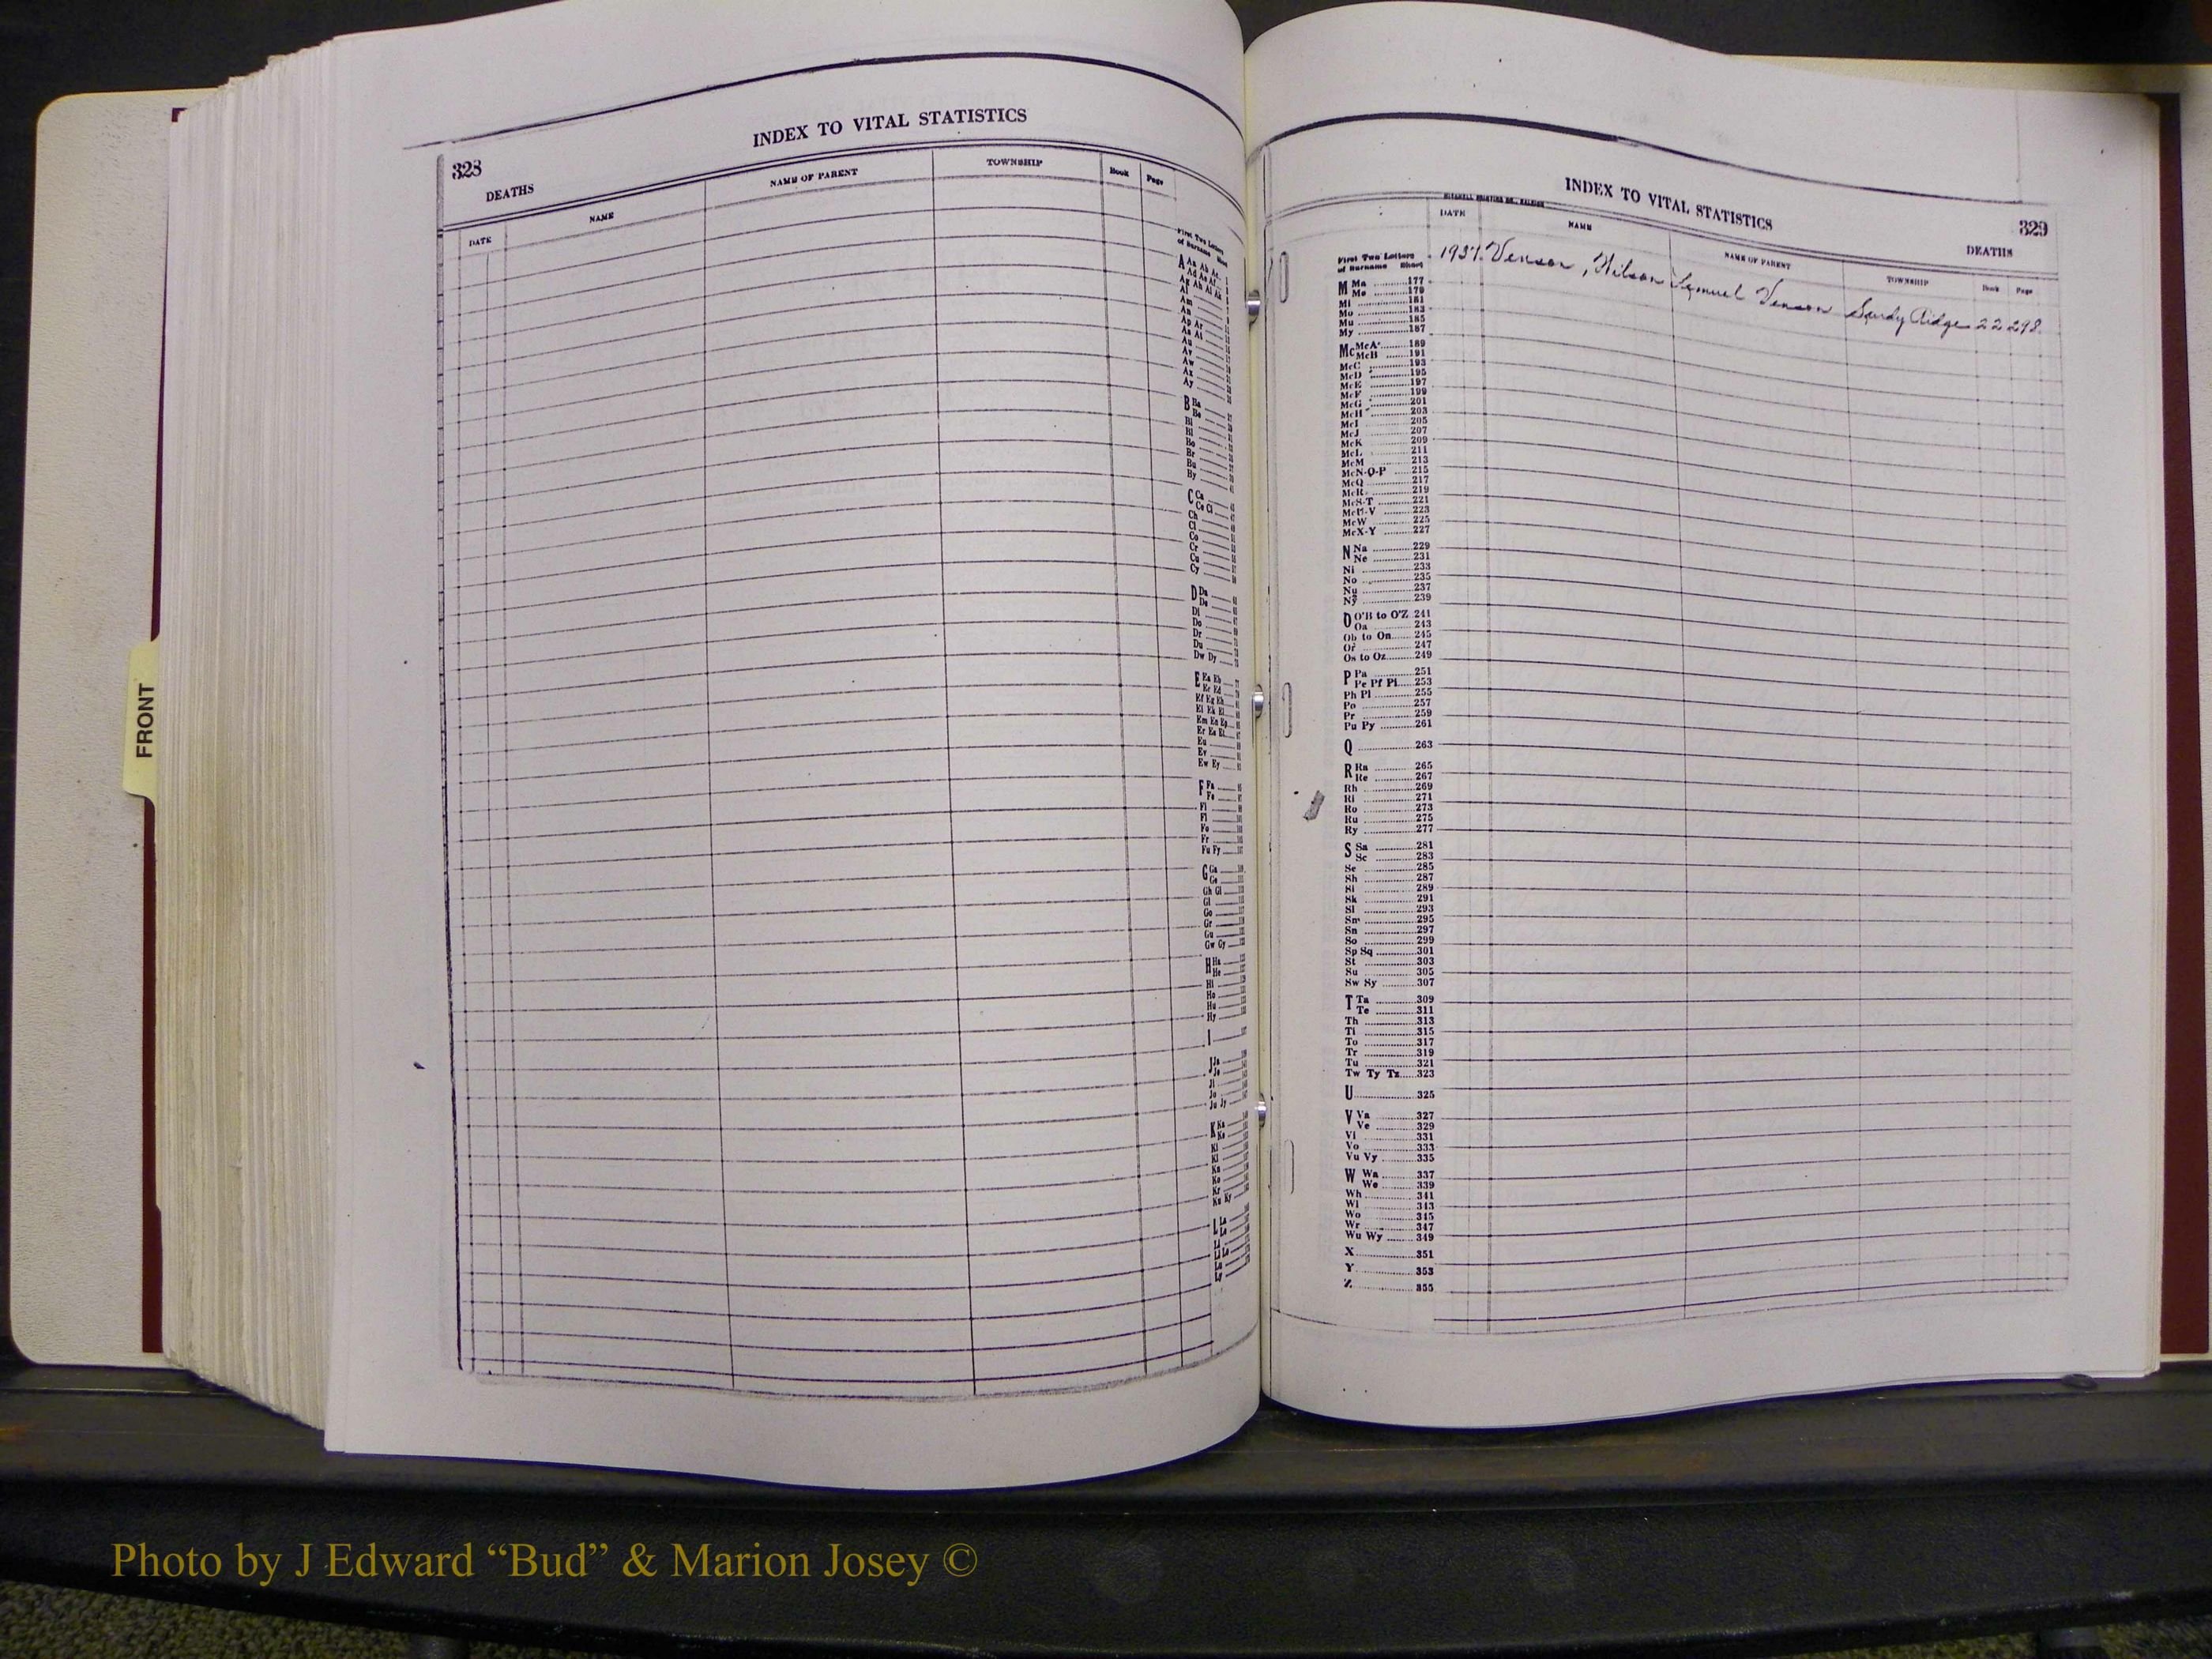 FRONT
328
INDEX TO VITAL STATISTICS
DEATHS
DATE NAME NAME OF PARENT TOWNSHIP Book Page
First Two Letters
of Surname
A Aa Ab Ac
Al
Am
An
Ap Ar
Au
Av
Aw
Ax
Ay
B Ba
Be
Bi
Bl
Bo
Br
Bu
By
C Ca
Ce Ci
Ch
Cl
Co
Cr
Cu
Cy
D Da
De
Di
Do
Dr
Du
Dw Dy
E Ea Eb
Ec Ed
Ef Eg Eh
Ei Ek El
Em En Ep
Er Es Et
Eu
Ev
Ew Ey
F Fa
Fe
Fi
Fl
Fo
Fr
Fu Fy
G Ga
Ge
Gh Gi
Gl
Go
Gr
Gu
Gw Gy
H Ha
He
Hi
Ho
Hu
Hy
I
J Ja
Je
Ji
Jo
Ju Jy
K Ka
Ke
Ki
Kl
Kn
Ko
Kr
Ku Ky
INDEX TO VITAL STATISTICS
329
DEATHS
DATE NAME NAME OF PARENT TOWNSHIP Book Page
1937 Venson, Wilson Lemuel Venson Sandy Ridge 22 298
First Two Letters
of Surname Sheet
M Ma 177
Me 179
Mi 181
Mo 183
Mu 185
My 187
Mc McA 189
McB 191
McC 193
McD 195
McE 197
McF 199
McG 201
McH 203
McI 205
McJ 207
McK 209
McL 211
McM 213
McN-O-P 215
McQ 217
McR 219
McS-T 221
McU-V 223
McW 225
McX-Y 227
N Na 229
Ne 231
Ni 233
No 235
Nu 237
Ny 239
O O'B to O'Z 241
Oa 243
Ob to On 245
Or 247
Os to Oz 249
P Pa 251
Pe Pf Pi 253
Ph Pl 255
Po 257
Pr 259
Pu Py 261
Q 263
R Ra 265
Re 267
Rh 269
Ri 271
Ro 273
Ru 275
Ry 277
S Sa 281
Sc 283
Se 285
Sh 287
Si 289
Sk 291
Sl 293
Sm 295
Sn 297
So 299
Sp Sq 301
St 303
Su 305
Sw Sy 307
T Ta 309
Te 311
Th 313
Ti 315
To 317
Tr 319
Tu 321
Tw Ty Tz 323
U 325
V Va 327
Ve 329
Vi 331
Vo 333
Vu Vy 335
W Wa 337
We 339
Wh 341
Wi 343
Wo 345
Wr 347
Wu Wy 349
X 351
Y 353
Z 355
Photo by J Edward “Bud” & Marion Josey ©